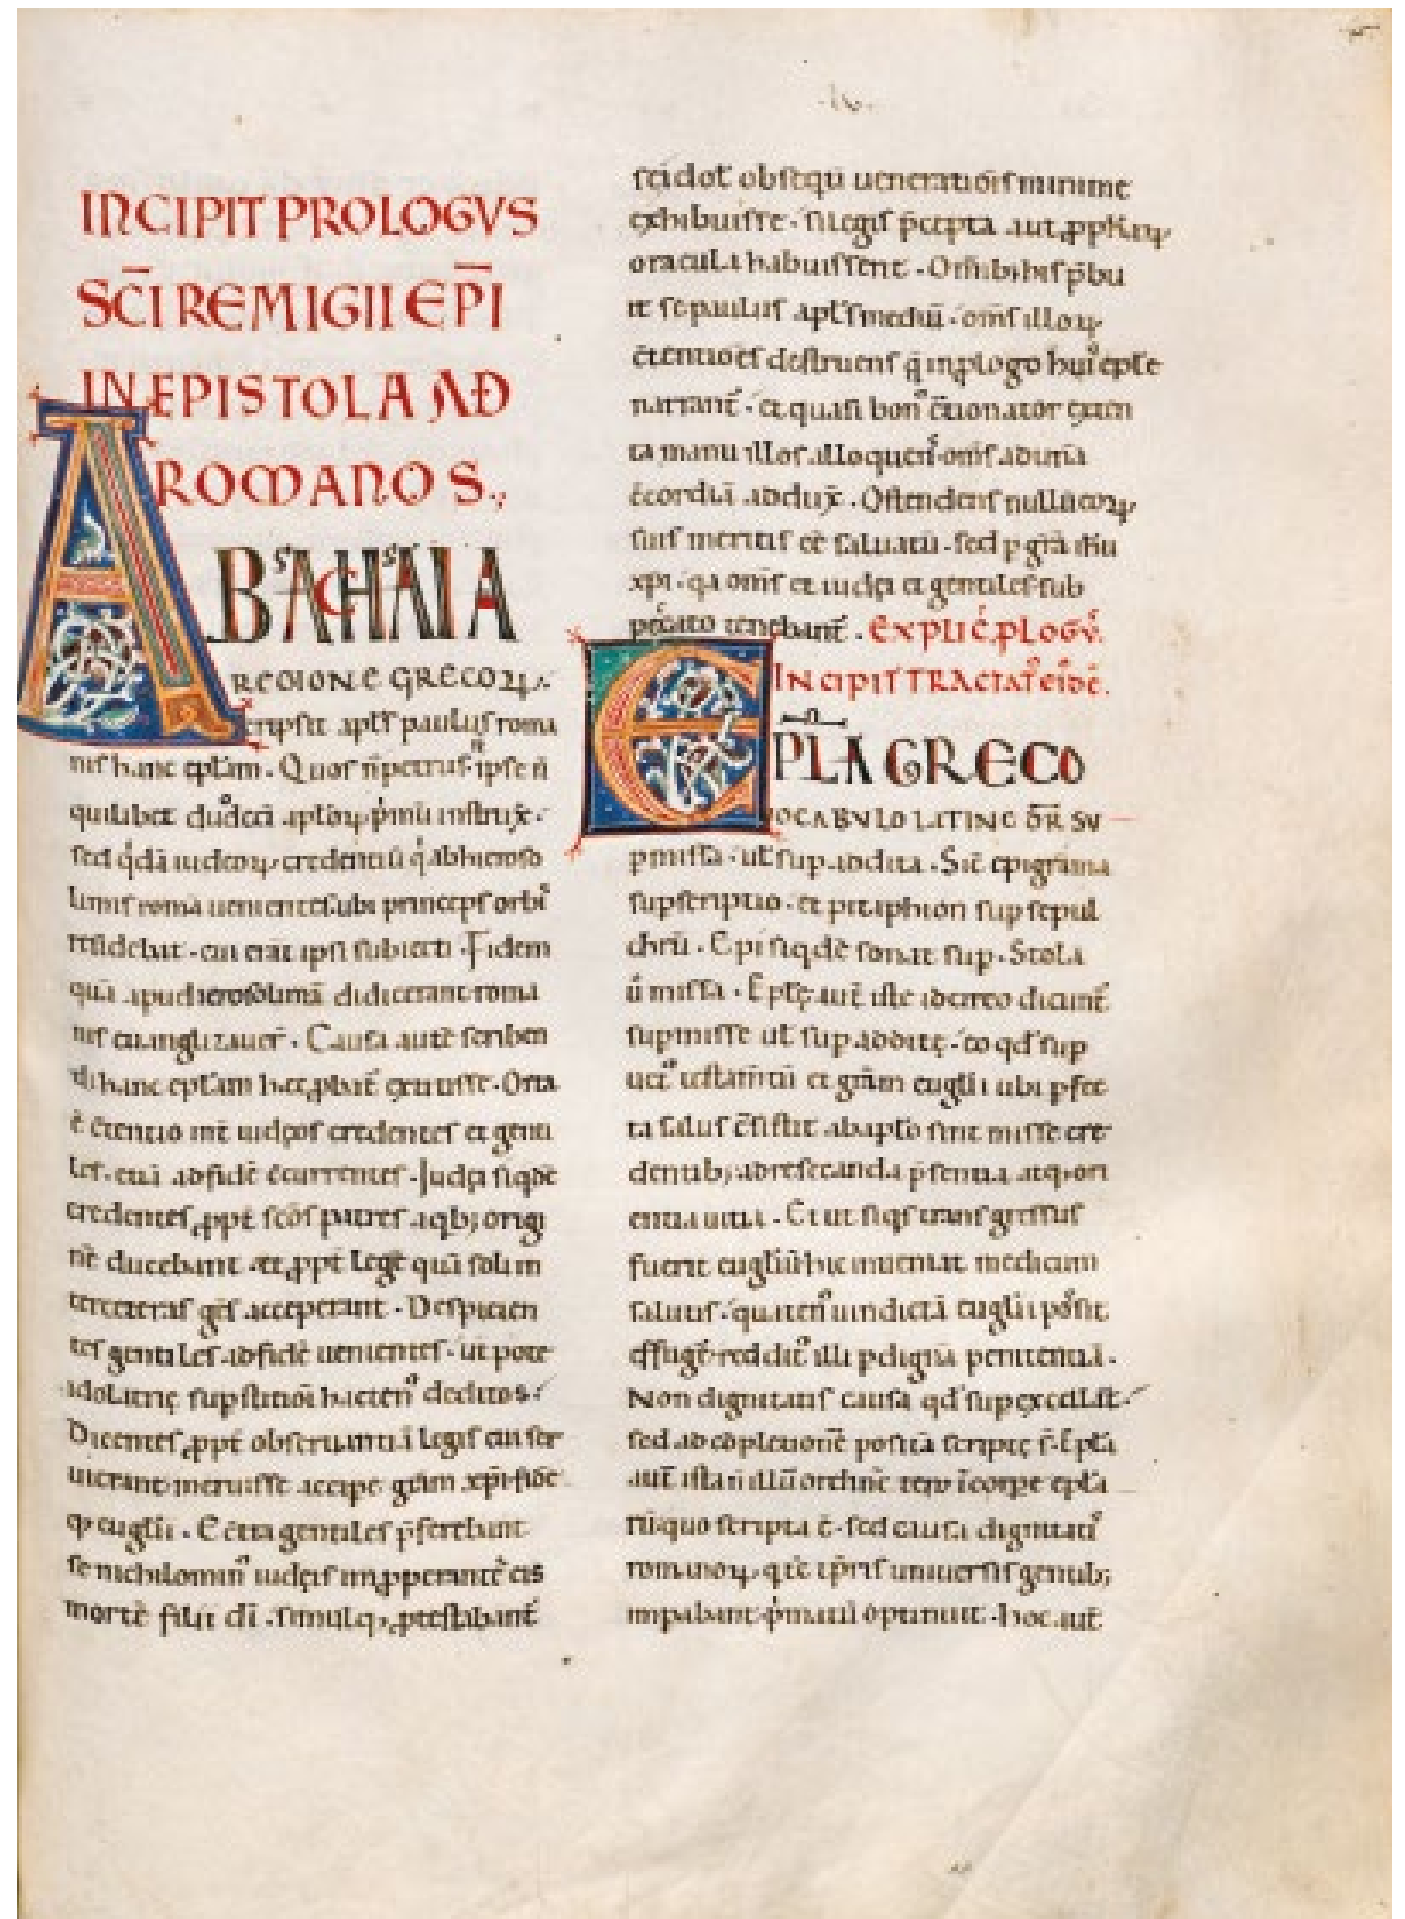 ·IV·
INCIPIT PROLOGVS
SC̄I REMIGII EP̄I
IN EPISTOLA AD
ROMANOS.
A B ACHAIA
REGIONE GRECOꝜ
scripsit apl̄s paulus roma
nis hanc epl̄am. Quos n̄ petrus n̄ ipse n̄
quilibet duodeci aplōꝝ p̍mū instrux̄.
sed q̍dā iudeoꝝ credentiū q̍ ab hieroso
limis romā uenientes. ubi princeps orbis
residebat. cui erāt ipsi subiecti. Fidem
quā apud hierosolimā didicerant roma
nis euanglizauer̄. Causa autē scriben
di hanc epl̄am hec ꝓbat̄ extitisse. Orta
ē c̄tentio int̄ iudęos credentes et genti
les. etiā ad fidē c̄currentes. Iudęi siqdē
credentes ꝓpt̄ sc̄os patres a qb; origi
nē ducebant. et ꝓpt̄ legē quā soli in
ter ceteras gēs acceperant. Despicien
tes gentiles ad fidē uenientes. ut pote
idolatrię sup̄stitioī hacten᷒ deditos.
Dicentes ꝓpt̄ obseruantiā legis cui ser
uierant meruisse accipe grām xp̄i. fidē
qꝫ euglii. E c̄tra gentiles p̄ferebant
se nichilomin᷒ iudęis imꝓperantes eis
mortē filii dī. simulqꝫ ꝓtestabant̄
sc̍idot̄ obsequiū uenerationis minime
exhibuisse. si legis p̄cepta aut ꝓphaꝝ
oracula habuissent. Om̄ib; his p̄bu
it se paulus apl̄s mediū. om̄s illoꝝ
c̄tentiōes destruens q̄ in ꝓlogo hui᷒ epl̄e
narrant̄. et quasi bon᷒ c̄tionator exten
ta manu illos alloquens. om̄s ad unā
c̄cordiā addux̄. Ostendens nullū eoꝝ
suis meritis eē saluatū. sed p grām dn̄i
xp̄i. qa om̄s et iudęi et gentiles sub
peccato tenebant̄. EXPLIC̄ ꝓLOGVS.
INCIPIT TRACTAT᷒ EI᷒DĒ.
EPL̄A GRECO
VOCABVLO LATINE DR̄ SV
pmissa. ut̄ sup addita. Sic̄ epigrāma
supscriptio. et pitaphion sup sepul
chrū. Epi siqdē sonat sup. Stola
ū missa. Epl̄ę aut̄ iste idcirco dicunt̄
supmisse ut̄ sup additę. eo qd̄ sup
uet᷒ testam̄tū et grām euglii ubi pfec
ta salus c̄sistit ab aplō sint misse cre
dentib; ad resecanda p̄sentia atqꝫ ori
entia uitia. Et ut siqs transgressus
fuerit eugliū hic inueniat medicinā
salutis. quaten᷒ uindictā euglii possit
effuge reddit᷒ illi p dignā penitentiā.
Non dignitatis causa qd̄ sup excellit
sed ad c̄pletionē posita scripte s̄. Epl̄a
aut̄ ista n̄ illū ordinē tenꝫ ī corpe epl̄a
rū quo scripta ē. sed causa dignitatis
romanoꝝ. q̄ tēpris uniuersis gentib;
impabant. p̍matū optinuit. Hoc aut̄